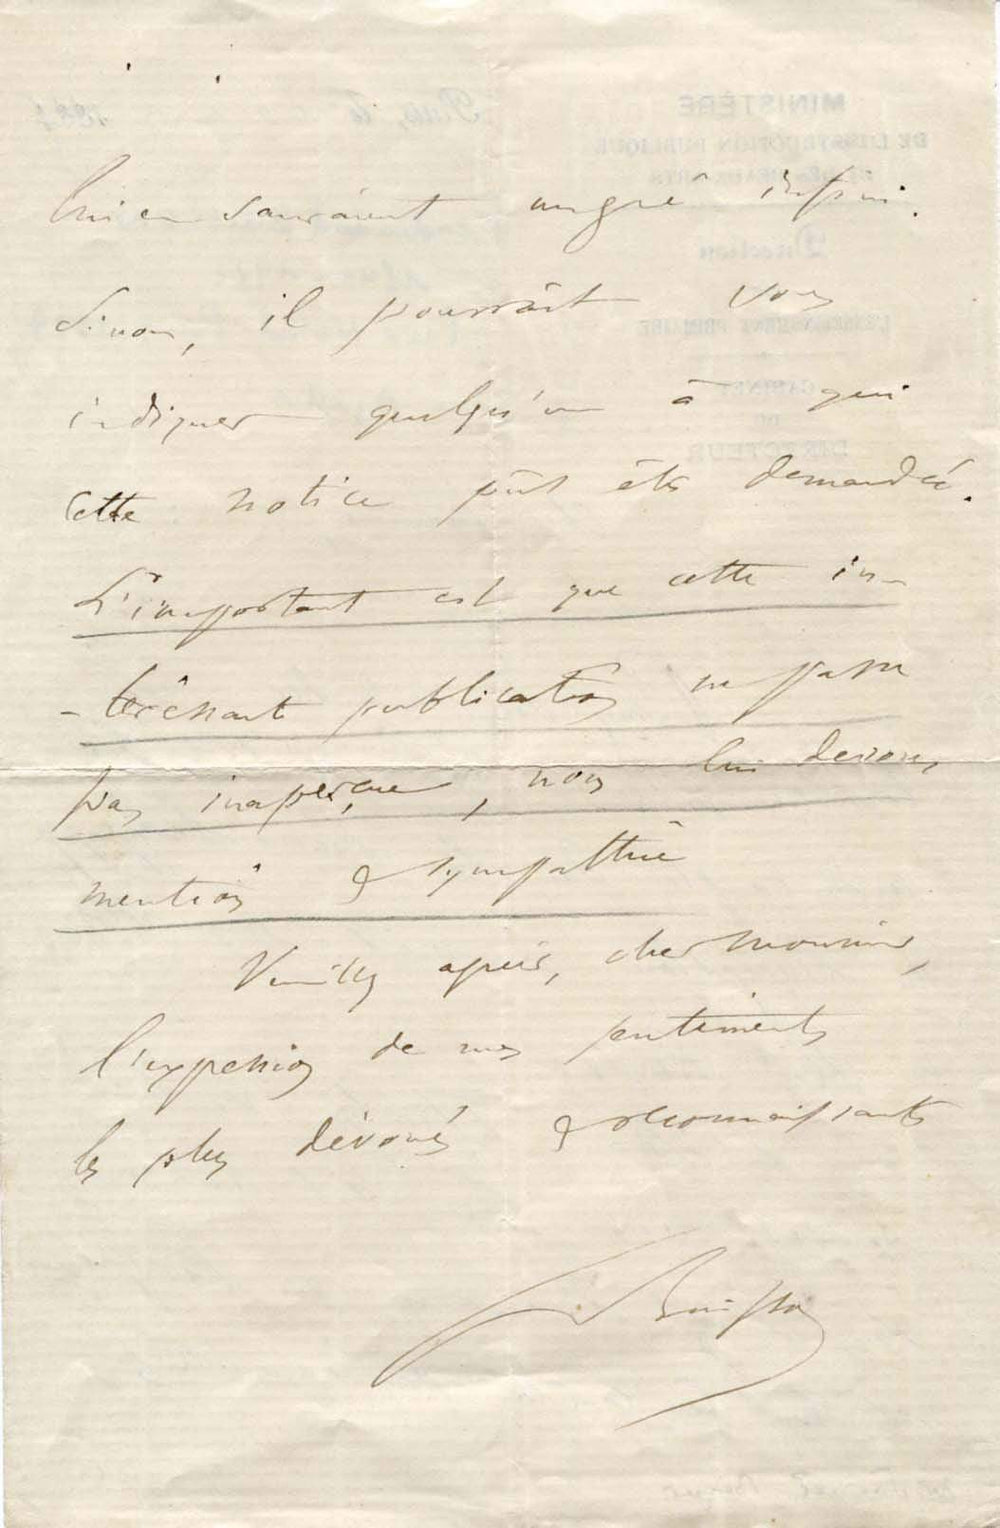 lui en sauraient un gré infini.
Sinon, il pourrait vous
indiquer quelqu'un à qui
cette notice pût être demandée.
L'important est que cette in-
-téressante publication ne passe
pas inaperçue, nous lui devons
mention & sympathie
Veuillez agréer, cher Monsieur,
l'expression de mes sentiments
les plus dévoués & reconnaissants
F. Buisson
MINISTÈRE
DE L'INSTRUCTION PUBLIQUE
ET DES BEAUX-ARTS
Direction
L'ENSEIGNEMENT PRIMAIRE
CABINET
DU
DIRECTEUR
Paris, le